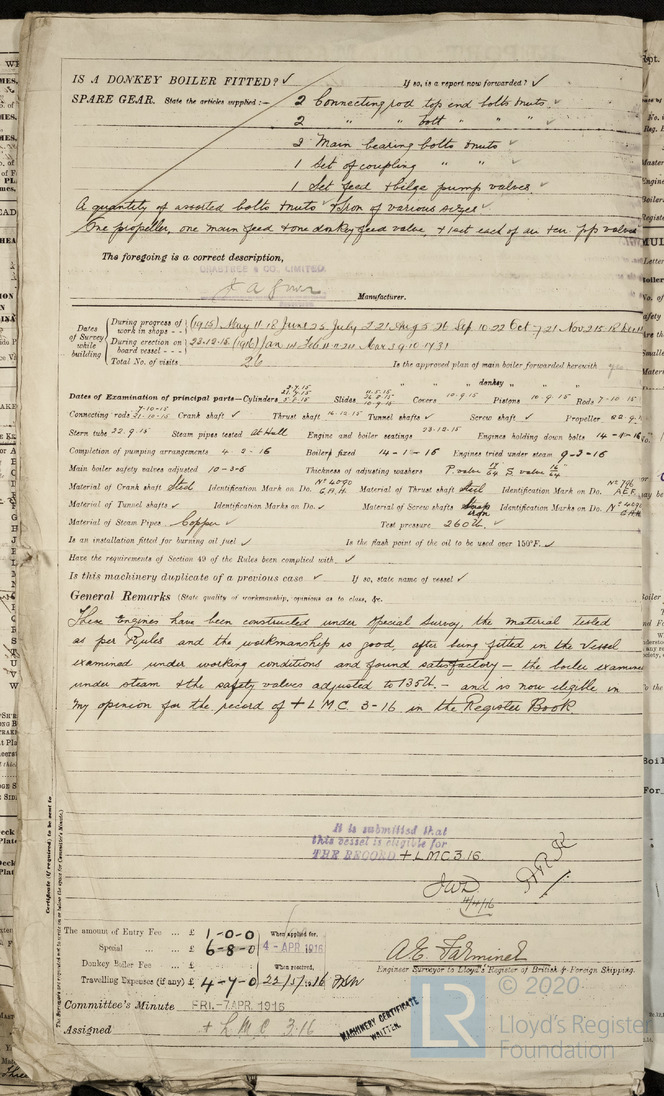 IS A DONKEY BOILER FITTED? ✓ If so, is a report now forwarded? ✓
SPARE GEAR. State the articles supplied :— 2 Connecting rod top end bolts & nuts ✓
2 " " bolt " " " ✓
2 Main bearing bolts & nuts ✓
1 Set of coupling " " ✓
1 Set feed & bilge pump valves ✓
A quantity of assorted bolts & nuts ✓ Iron of various sizes ✓
One propeller, one main feed & one donkey feed valve, & 1 set each of
The foregoing is a correct description,
CRABTREE & CO. LIMITED.
Manufacturer.
Dates of Survey while building
During progress of work in shops - - (1915) May 11 18 June 25 July 2 21 Aug 5 26 Sep 10 22 Oct 7 21 Nov 2 15 18
During erection on board vessel - - - 23.12.15 (1916) Jan 14 Feb 11 Mar 3 9 10 17 31
Total No. of visits 26
Is the approved plan of main boiler forwarded herewith
" " " donkey " " "
Dates of Examination of principal parts—Cylinders Slides Covers 10.9.15 Pistons 10.9.15 Rods 7-10-15
Connecting rods 7-10-15 21-10-15 Crank shaft ✓ Thrust shaft 14.12.15 Tunnel shafts ✓ Screw shaft ✓ Propeller
Stern tube 22.9.15 Steam pipes tested at Hull Engine and boiler seatings 23.12.15 Engines holding down bolts 14-1-16
Completion of pumping arrangements 4-2-16 Boilers fixed 14-1-16 Engines tried under steam 9-3-16
Main boiler safety valves adjusted 10-3-6 Thickness of adjusting washers P valve S valve
Material of Crank shaft Steel Identification Mark on Do. No 4090 G.A.H. Material of Thrust shaft Steel Identification Mark on Do. No 786 A.E.F.
Material of Tunnel shafts ✓ Identification Marks on Do. ✓ Material of Screw shafts Scrap iron Identification Marks on Do. No 4091 G.A.H.
Material of Steam Pipes Copper ✓ Test pressure 260 lb. ✓
Is an installation fitted for burning oil fuel ✓ Is the flash point of the oil to be used over 150°F. ✓
Have the requirements of Section 49 of the Rules been complied with ✓
Is this machinery duplicate of a previous case ✓ If so, state name of vessel ✓
General Remarks (State quality of workmanship, opinions as to class, &c.
These Engines have been constructed under Special Survey, the material tested
as per Rules and the workmanship is good, after being fitted in the Vessel
examined under working conditions and found satisfactory – the boiler examined
under steam & the safety valves adjusted to 135 lb. – and is now eligible in
my opinion for the record of + L M C 3-16 in the Register Book
It is submitted that
this vessel is eligible for
THE RECORD + L M C 3.16
JWD
11/4/16
Certificate (if required) to be sent to
The amount of Entry Fee ... £ 1-0-0 When applied for,
Special ... £ 6-8-0 4 - APR. 1916
Donkey Boiler Fee ... £ When received,
Travelling Expenses (if any) £ 4-7-0 22/5/16
Engineer Surveyor to Lloyd's Register of British & Foreign Shipping.
Committee's Minute FRI. -7 APR. 1916
Assigned + L M C 3.16
MACHINERY CERTIFICATE
WRITTEN.
LR © 2020
Lloyd's Register
Foundation